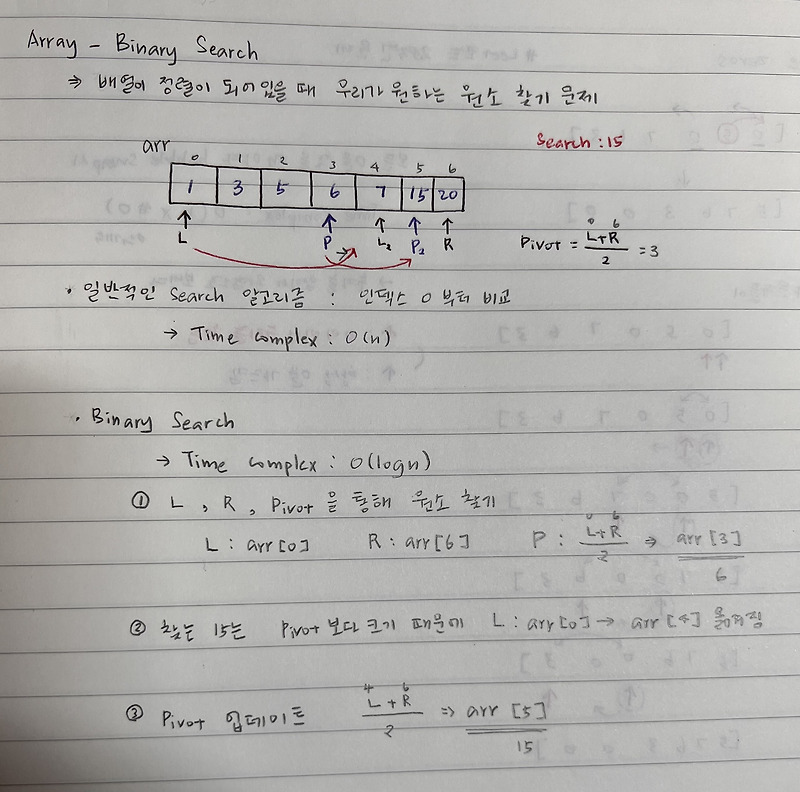 Array - Binary Search
⇒ 배열이 정렬이 되어있을 때 우리가 원하는 원소 찾기 문제
Search : 15
arr
0 1 2 3 4 5 6
1 3 5 6 7 15 20
↑ ↑ ↑ ↑ ↑
L P L₂ P₂ R
Pivot = (L+R)/2 = 3
0 6
• 일반적인 Search 알고리즘 : 인덱스 0 부터 비교
→ Time complex : O(n)
• Binary Search
→ Time complex : O(logn)
① L , R , Pivot 을 통해 원소 찾기
0 6
L : arr[0] R : arr[6] P : (L+R)/2 ⇒ arr[3]
6
② 찾는 15는 Pivot 보다 크기 때문에 L : arr[0] → arr[4] 옮겨짐
4 6
③ Pivot 업데이트 (L+R)/2 ⇒ arr[5]
15